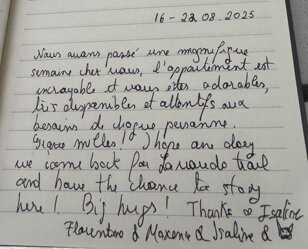 16-23.08.2025
Nous avons passé une magnifique
semaine chez vous, l'appartement est
incroyable et vous êtes adorables,
très disponibles et attentifs aux
besoins de chaque personne.
milles! I hope one day
we come back for Lavaredo trail
and have the chance to stay
here! Big hugs! Thanks
Florentino & Maxence & Isaline &